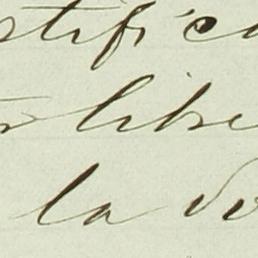 stifica
libre
la do